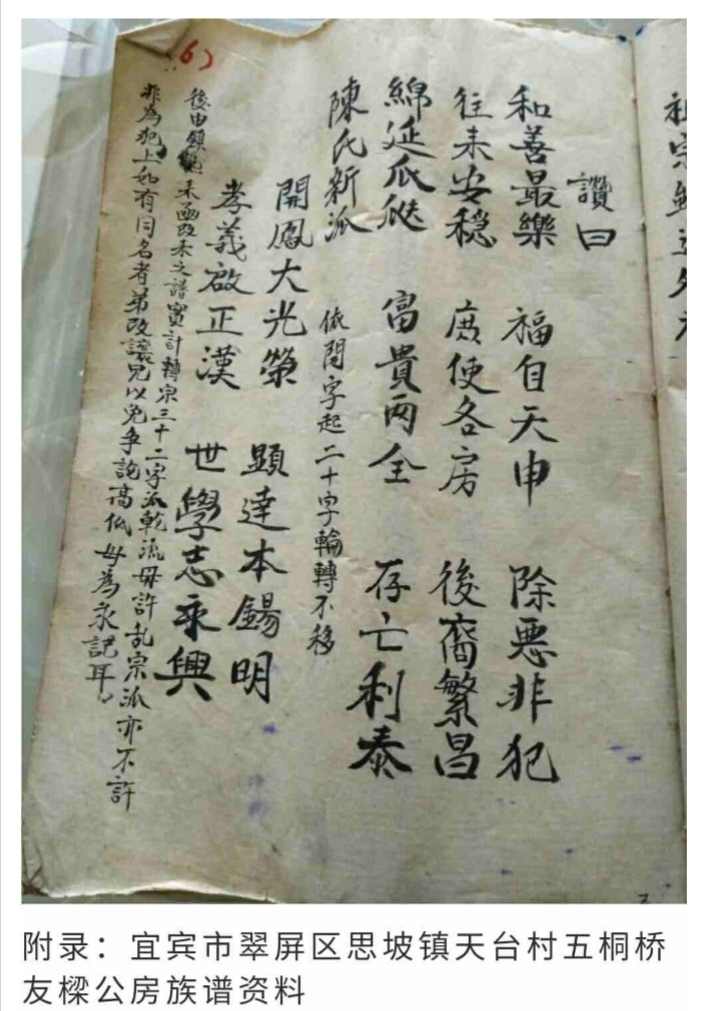 祖宗
讚曰
和善最樂 福自天申 除悪非犯
往来安穏 庶使各房 後裔繁昌
綿延瓜瓞 富貴両全 存亡利泰
陳氏新派 依開字起二十字輪轉不移
開鳳大光榮 顕達本錫明
孝義啟正漢 世學志永興
後由 未 改未之譜實計轉宗三十二字派乾流毋許乱宗派亦不許
非為犯上如有同名者弟改譲兄以免争論高低毋為永記耳
6)
附录：宜宾市翠屏区思坡镇天台村五桐桥
友樑公房族谱资料